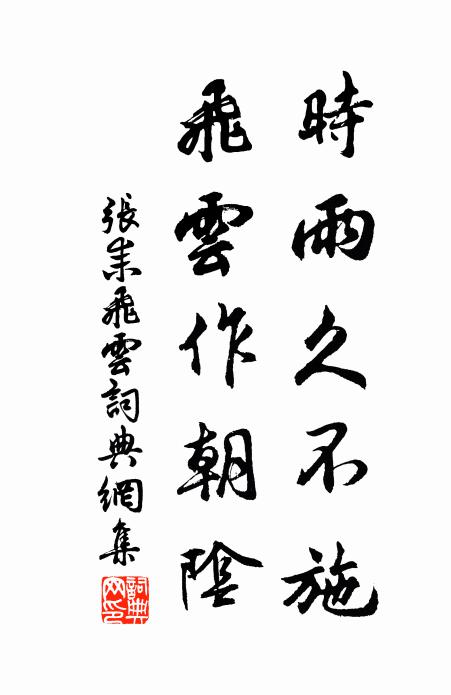 時雨久不施
飛雲作朝陰
張耒飛雲詞典網集
詞典
网印